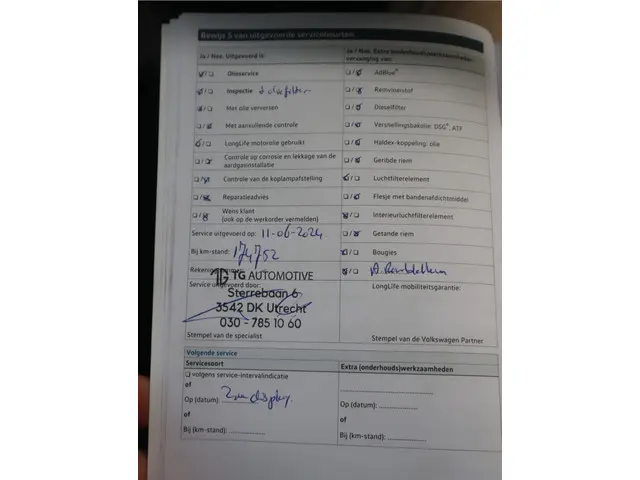 Bewijs 5 van uitgevoerde servicebeurten
Ja / Nee. Uitgevoerd is:
Olieservice
Inspectie
Met olie verversen
Met aanvullende controle
LongLife motorolie gebruikt
Controle op corrosie en lekkage van de
aardgasinstallatie
Controle van de koplampafstelling
Reparatieadvies
Wens klant
(ook op de werkorder vermelden)
Service uitgevoerd op: 11-06-2024
Bij km-stand: 174752
Service uitgevoerd door:
TG AUTOMOTIVE
Sterrebaan 6
3542 DK Utrecht
030 - 785 10 60
Stempel van de specialist
Ja / Nee. Extra (onderhouds)werkzaamheden,
vervanging van:
AdBlue®
Remvloeistof
Dieselfilter
Versnellingsbakolie: DSG®, ATF
Haldex-koppeling: olie
Geribde riem
Luchtfilterelement
Flesje met bandenafdichtmiddel
Interieurluchtfilterelement
Getande riem
Bougies
LongLife mobiliteitsgarantie:
Stempel van de Volkswagen Partner
Volgende service
Servicesoort
volgens service-intervalindicatie
of
Op (datum):
of
Bij (km-stand):
Extra (onderhouds)werkzaamheden
Op (datum):
of
Bij (km-stand):